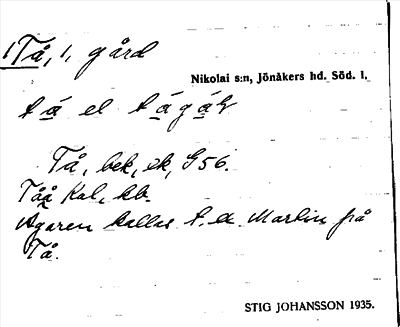 1 Tå, 1, gård
Nikolai s:n, Jönåkers hd. Söd. l.
tá el tágár
Tå, bek, ek, G56.
Tåå Kal, kb.
Ägaren kallas t. ex. Martin på
Tå.
STIG JOHANSSON 1935.